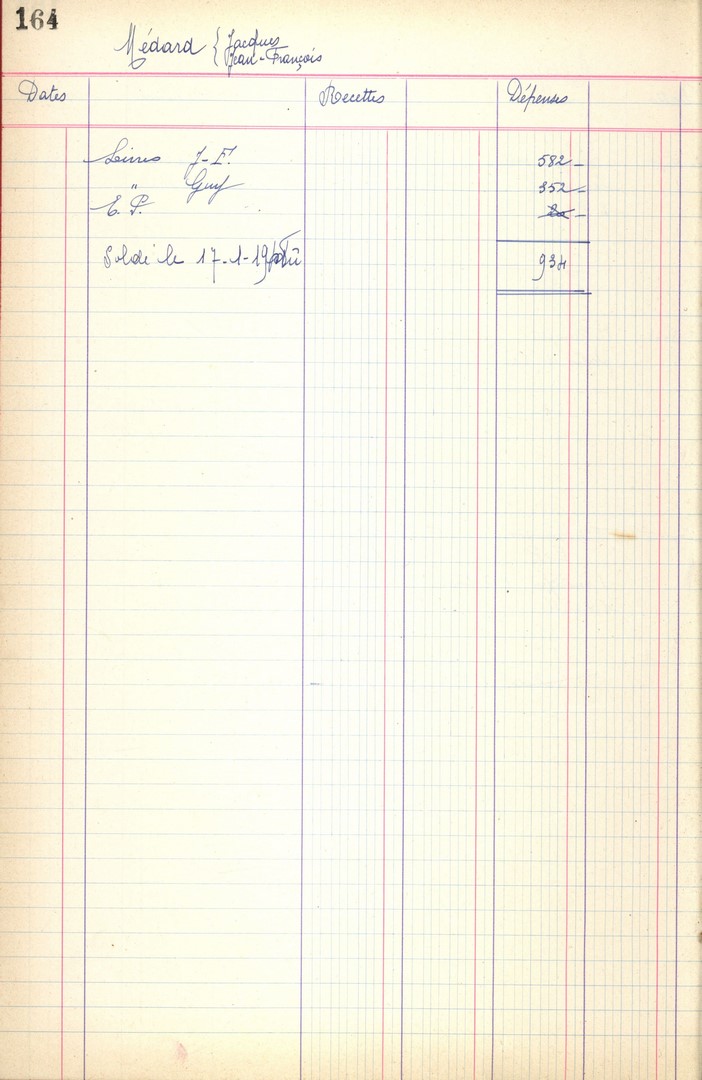 164
Médard { Jacques
Jean-François
Dates Recettes Dépenses
Livres J-F. 582 -
" Guy 352 -
E. P. -
Soldé le 17-1-19
934